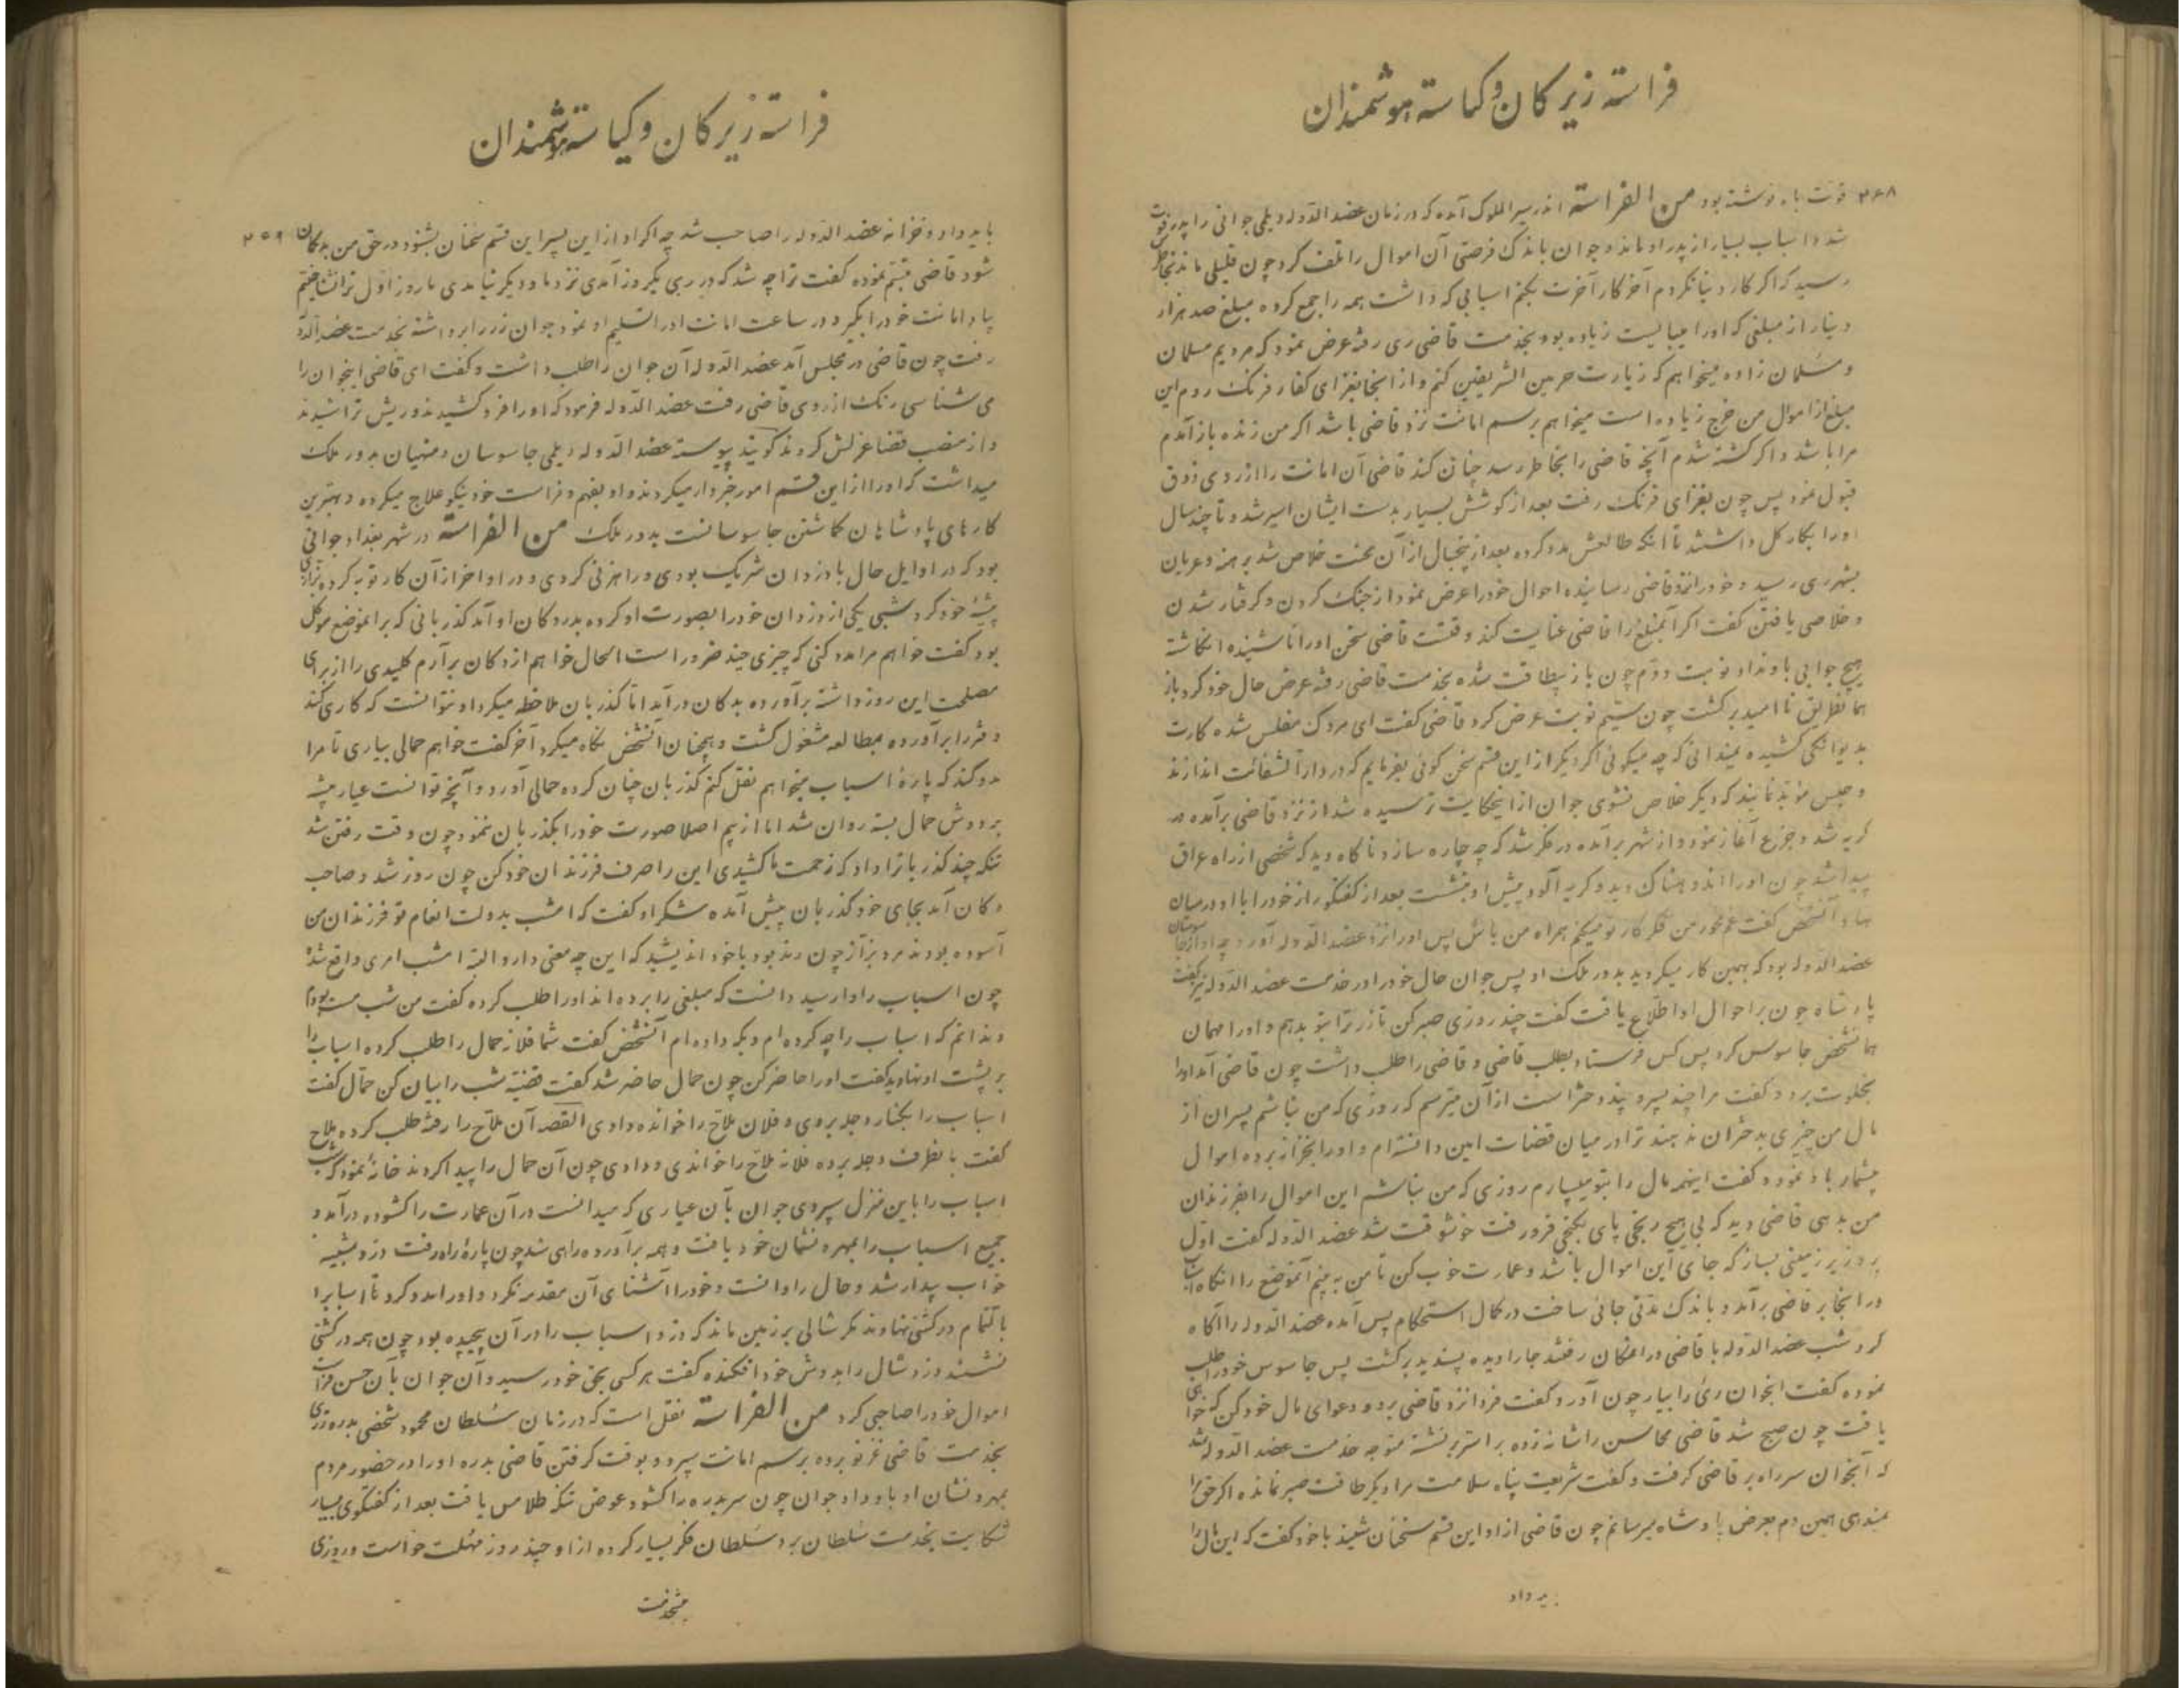 فراسته زیرکان و کیاسته هوشمندان
۲۶۸
فوت باه نوشته بود من الفراسة اندر سیر الملوک آمده که در زمان عضد الدوله دیلمی جوانی را پدر فوت
شد و اسباب بسیار از پدر او ماند و جوان باندک فرصتی آن اموال را تلف کرد چون قلیلی ماند بخاطرش
رسید که اگر کار دنیا نکردم آخر کار آخرت بکنم اسبابی که داشت همه را جمع کرده مبلغ صد هزار
دینار از مبلغی که او را میبایست زیاده بود بخدمت قاضی ری رفته عرض نمود که مردیم مسلمان
و مسلمان زاده میخواهم که زیارت حرمین الشریفین کنم و از آنجا بغزای کفار فرنگ روم این
مبلغ از اموال من خرج زیاده است میخواهم برسم امانت نزد قاضی باشد اگر من زنده باز آمدم
مرا باشد و اگر کشته شدم آنچه قاضی را بخاطر رسد چنان کند قاضی آن امانت را از روی ذوق
قبول نمود پس چون بغزای فرنگ رفت بعد از کوشش بسیار بدست ایشان اسیر شد و تا چند سال
او را بکار گل داشتند تا آنکه طالعش مدد کرده بعد از پنجسال از آن محنت خلاص شد برهنه و عریان
بشهر ری رسید و خود را نزد قاضی رسانیده احوال خود را عرض نمود از جنگ کردن و گرفتار شدن
و خلاصی یافتن گفت اگر آنمبلغ را قاضی عنایت کند وقتست قاضی سخن او را ناشنیده انگاشته
هیچ جوابی باو نداد نوبت دوم چون باز بیطاقت شده بخدمت قاضی رفته عرض حال خود کرد باز
همانطریق نا امید برگشت چون سیم نوبت عرض کرد قاضی گفت ای مردک مفلس شده کارت
بدیوانگی کشیده نمیدانی که چه میگوئی اگر دیگر از این قسم سخن گوئی بفرمایم که در دار الشفائت اندازند
و حبس مؤبد نمایند که دیگر خلاص نشوی جوان از اینحکایت ترسیده شد از نزد قاضی برآمده در
گریه شد و جزع آغاز نمود و از شهر برآمده در فکر شد که چه چاره سازد ناگاه دید که شخصی از راه عراق
پیدا شد چون او را اندوهناک دید و گریه آلود پیش او بنشست بعد از گفتگو راز خود را با او در میان
نهاد آنشخص گفت غم مخور من فکر کار تو میکنم همراه من باش پس او را نزد عضد الدوله آورد چه او از جاسوسان
عضد الدوله بود که بهمین کار میگردید بدور ملک او پس جوان حال خود را در خدمت عضد الدوله نیز بگفت
پادشاه چون بر احوال او اطلاع یافت گفت چند روزی صبر کن تا زر ترا بتو بدهم و او را مهمان
همانشخص جاسوس کرد پس کس فرستاد بطلب قاضی و قاضی را طلب داشت چون قاضی آمد او را
بخلوت برد و گفت مرا چند پسر و چند دختر است از آن میترسم که روزی که من نباشم پسران از
مال من چیزی بدختران ندهند ترا در میان قضات امین دانسته‌ام و او را بخزانه برده اموال
بیشمار باو نموده گفت اینهمه مال را بتو میسپارم روزی که من نباشم این اموال را بفرزندان
من بدهی قاضی دید که بی هیچ رنجی پای بگنجی فرو رفت خوشوقت شد عضد الدوله گفت اول
برو زیر زمینی بساز که جای این اموال باشد و عمارت خوب کن تا من به بینم آنموضع را آنگاه اسباب
در آنجا بر قاضی برآمد و باندک مدتی جائی ساخت در کمال استحکام پس آمده عضد الدوله را آگاه
کرد شب عضد الدوله با قاضی در آنمکان رفتند جا را دیده پسندید برگشت پس جاسوس خود را طلب
نموده گفت آنجوان ری را بیار چون آورد گفت فردا نزد قاضی برو و دعوای مال خود کن که خواهی
یافت چون صبح شد قاضی محاسن را شانه زده بر استر برنشسته متوجه خدمت عضد الدوله شد
که آنجوان سر راه بر قاضی گرفت و گفت شریعت پناه سلامت مرا دیگر طاقت صبر نمانده اگر حق مرا
نمیدهی همین دم بعرض پادشاه میرسانم چون قاضی از او این قسم سخنان شنید با خود گفت که این مال را
بیرداد
فراسته زیرکان و کیاسته هوشمندان
۲۶۹
باید داد و خزانه عضد الدوله را صاحب شد چه اگر او از این پسر این قسم سخنان بشنود در حق من بدگمان
شود قاضی تبسم نموده گفت ترا چه شد که در ری یکروز آمدی نزد ما و دیگر نیامدی ما روز اول ترا نشناختیم
بیا و امانت خود را بگیر و در ساعت امانت او را تسلیم او نمود جوان زر را برداشته بخدمت عضد الدوله
رفت چون قاضی در مجلس آمد عضد الدوله آن جوان را طلب داشت و گفت ای قاضی اینجوان را
می شناسی رنگ از روی قاضی رفت عضد الدوله فرمود که او را فرو کشیدند و ریش تراشیدند
و از منصب قضا عزلش کردند گویند پیوسته عضد الدوله دیلمی جاسوسان و منهیان بدور ملک
میداشت که او را از این قسم امور خبردار میکردند و او بفهم و فراست خود نیکو علاج میکرد و بهترین
کارهای پادشاهان گماشتن جاسوسانست بدور ملک من الفراسة در شهر بغداد جوانی
بود که در اوایل حال با دزدان شریک بودی و راهزنی کردی و در اواخر از آن کار توبه کرد و بزازی
پیشهٔ خود کرد شبی یکی از دزدان خود را بصورت او کرده بدر دکان او آمد گذربانی که بر آنموضع موکل
بود گفت خواهم مرا مدد کنی که چیزی چند ضرور است الحال خواهم از دکان برآرم کلیدی را از برای
مصلحت این روز داشته برآورده بدکان درآمد اما گذربان ملاحظه میکرد او نتوانست که کاری کند
دفتر را برآورده بمطالعه مشغول گشت و همچنان آنشخص نگاه میکرد آخر گفت خواهم حمالی بیاری تا مرا
مدد کند که پارهٔ اسباب میخواهم نقل کنم گذربان چنان کرده حمالی آورد و آنچه توانست عیار پیشه
بر دوش حمال بسته روان شد اما از بیم اصلا صورت خود را بگذربان ننمود چون وقت رفتن شد
تنکه چند گذربانرا داد که زحمت ما کشیدی این را صرف فرزندان خود کن چون روز شد و صاحب
دکان آمد بجای خود گذربان پیش آمده شکر او گفت که امشب بدولت انعام تو فرزندان من
آسوده بودند مرد بزاز چون رند بود با خود اندیشید که این چه معنی دارد البته امشب امری واقع شده
چون اسباب را وارسید دانست که مبلغی را برده‌اند او را طلب کرده گفت من شب مست بودم
و ندانم که اسباب را چه کرده‌ام و بکه داده‌ام آنشخص گفت شما فلانه حمال را طلب کرده اسباب را
بر پشت او نهادید گفت او را حاضر کن چون حمال حاضر شد گفت قضیّه شب را بیان کن حمّال گفت
اسباب را بکنار دجله بروی و فلان ملاح را خوانده دادی القصه آن ملاح را رفته طلب کرده ملاح
گفت بآنطرف دجله برده فلانه ملاح را خواندی و دادی چون آن حمال را پیدا کردند خانهٔ نمود که شب
اسباب را باین منزل سپردی جوان بآن عیاری که میدانست در آن عمارت را گشوده درآمد و
جمیع اسباب را بمهر و نشان خود یافت و همه برآورده راهی شد چون پارهٔ راه رفت دزد شبینه
خواب بیدار شد و حال را دانست و خود را آشنای آن مقدمه نکرد و او را مدد کرد تا اسبابرا
بالتمام در کشتی نهادند مگر شالی بر زمین ماند که دزد اسباب را در آن پیچیده بود چون همه در کشتی
نشستند دزد شال را بدوش خود افکنده گفت هر کسی بحق خود رسید و آن جوان بآن حسن فراست
اموال خود را صاحبی کرد من الفراسة نقل است که در زمان سلطان محمود شخصی بدره زری
بخدمت قاضی غزنو برده برسم امانت سپرد و بوقت گرفتن قاضی بدره او را در حضور مردم
بمهر و نشان او باو داد جوان چون سر بدره را گشود عوض تنکه طلا مس یافت بعد از گفتگوی بسیار
شکایت بخدمت سلطان برد سلطان فکر بسیار کرده از او چند روز مهلت خواست و روزی